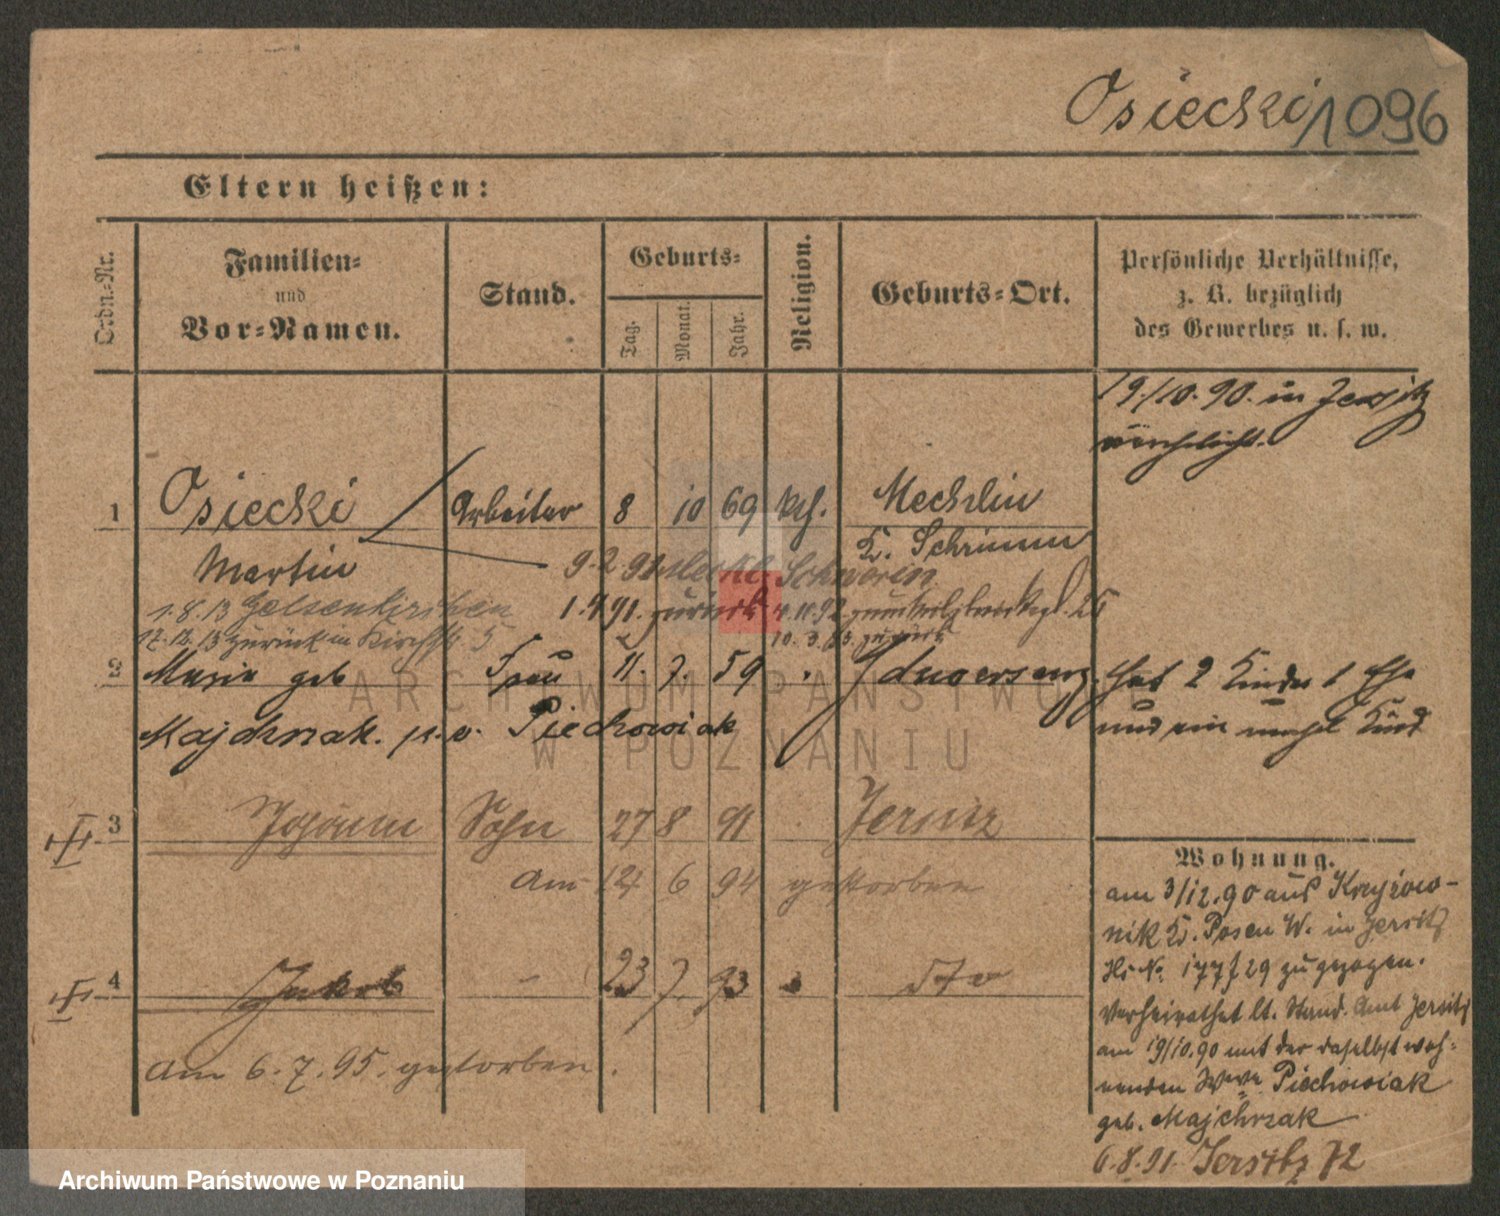 Osiecki 1096
Eltern heißen:
Ordn.-Nr.
Familien-
und
Vor-Namen.
Stand.
Geburts-
Tag.
Monat.
Jahr.
Religion.
Geburts-Ort.
Persönliche Verhältnisse,
z. B. bezüglich
des Gewerbes u. s. w.
19./10. 90. in Jersitz
verehelicht.
1 Osiecki Arbeiter 8 10 69 kth. Mechlin
K. Schrimm
Martin 9.2 91 Schwerin
1.8.13 Gelsenkirchen 1.4 91. zurück 4.11.92
17.12.13 zurück in Kirchstr 5 10.3.93. zurück
2 Maria geb Frau 11. 7. 59 hat 2 Kinder 1 Ehe
Majchrzak. p. v. Piechowiak und ein Kind
III 3 Johann Sohn 27 8 91 Jersitz
am 14 6 94 gestorben
III 4 Jakob - 23 7. 93 dto
Am 6.7.95. gestorben.
Wohnung.
am 3/12.90 aus Krzyżow-
nik K. Posen W. in Jersitz
Hs No. 177/29 zugezogen.
Verheirathet lt. Stand. Amt Jersitz
am 19/10.90 mit der daselbst woh-
nenden Wwe Piechowiak
geb. Majchrzak
6.8.91 Jersitz 72
ARCHIWUM PAŃSTWOWE
W POZNANIU
Archiwum Państwowe w Poznaniu